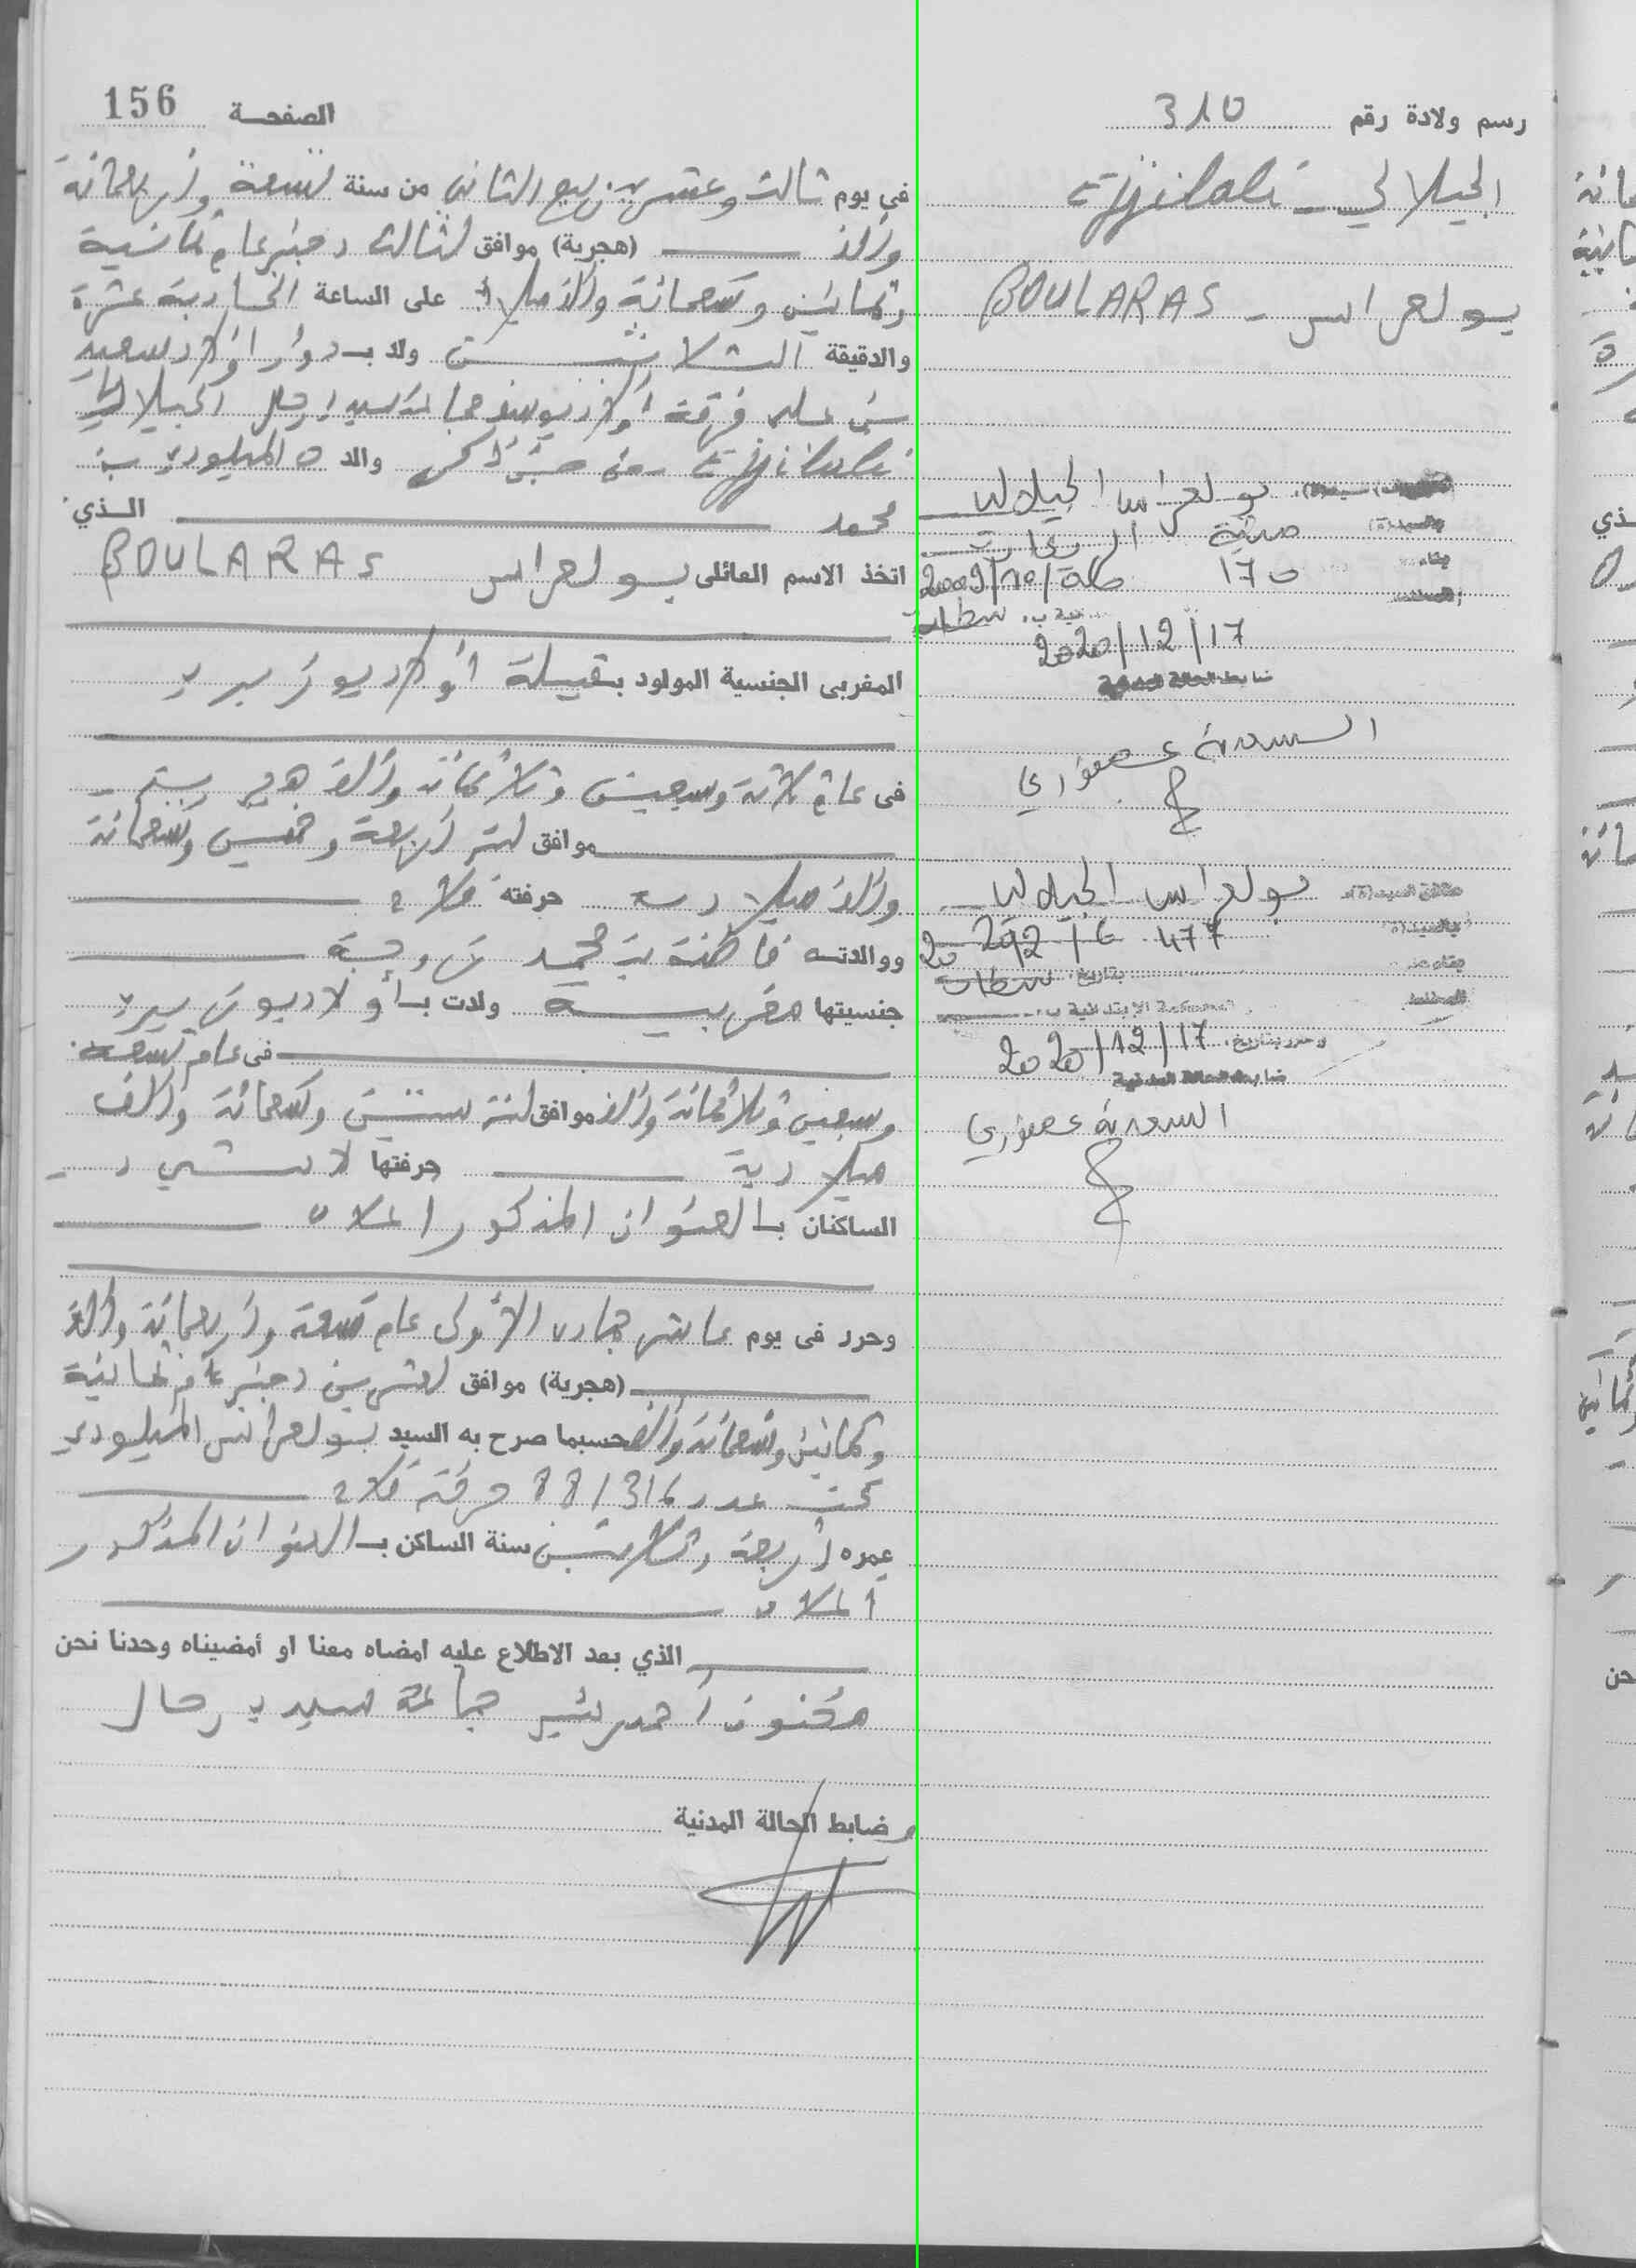 رسم ولادة رقم 310
الجيلالي - Ejjilali
بولعراس - BOULARAS
بولعراس الجيلالي
السيد(ة)
170 2009/10/
سطات
2020/12/17
ضابط الحالة المدنية
السعدية عصفوري
طلق السيد(ة) بولعراس الجيلالي
477
بتاريخ سطات
المحكمة الابتدائية ب
وحرر بتاريخ 2020/12/17
ضابط الحالة المدنية
السعدية عصفوري
الصفحة 156
في يوم ثالث وعشرين ربيع الثاني من سنة تسعة وأربعمائة
وألف (هجرية) موافق لثالث دجنبر عام ثمانية
وثمانين وتسعمائة وألف ميلادية على الساعة الحادية عشرة
والدقيقة الثلاثين ولد بـ دوار أولاد سعيد
فرقة أولاد يوسف جماعة سيدي رحال الجيلالي
Ejjilali جنسه ذكر والده الميلودي بن
محمد الذي
اتخذ الاسم العائلي بولعراس BOULARAS
المغربي الجنسية المولود بقبيلة أولاد بوزيري
في عام ثلاثة وسبعين وثلاثمائة وألف هجرية
موافق لسنة أربعة وخمسين وتسعمائة
وألف ميلادية حرفته فلاح
ووالدته فاطنة بنت محمد زوجته
جنسيتها مغربية ولدت بـ أولاد بوزيري
في عام تسعة
وسبعين وثلاثمائة وألف موافق لسنة ستين وتسعمائة وألف
ميلادية حرفتها لا شيء
الساكنان بـ العنوان المذكور أعلاه
وحرر في يوم عاشر جمادى الأولى عام تسعة وأربعمائة وألف
(هجرية) موافق لعشرين دجنبر عام ثمانية
وثمانين وتسعمائة وألف حسبما صرح به السيد بولعراس الميلودي
تحت عدد 88/314 حرفته فلاح
عمره أربعة وثلاثين سنة الساكن بـ العنوان المذكور
أعلاه
الذي بعد الاطلاع عليه امضاه معنا او أمضيناه وحدنا نحن
أحمد رئيس جماعة سيدي رحال
ضابط الحالة المدنية